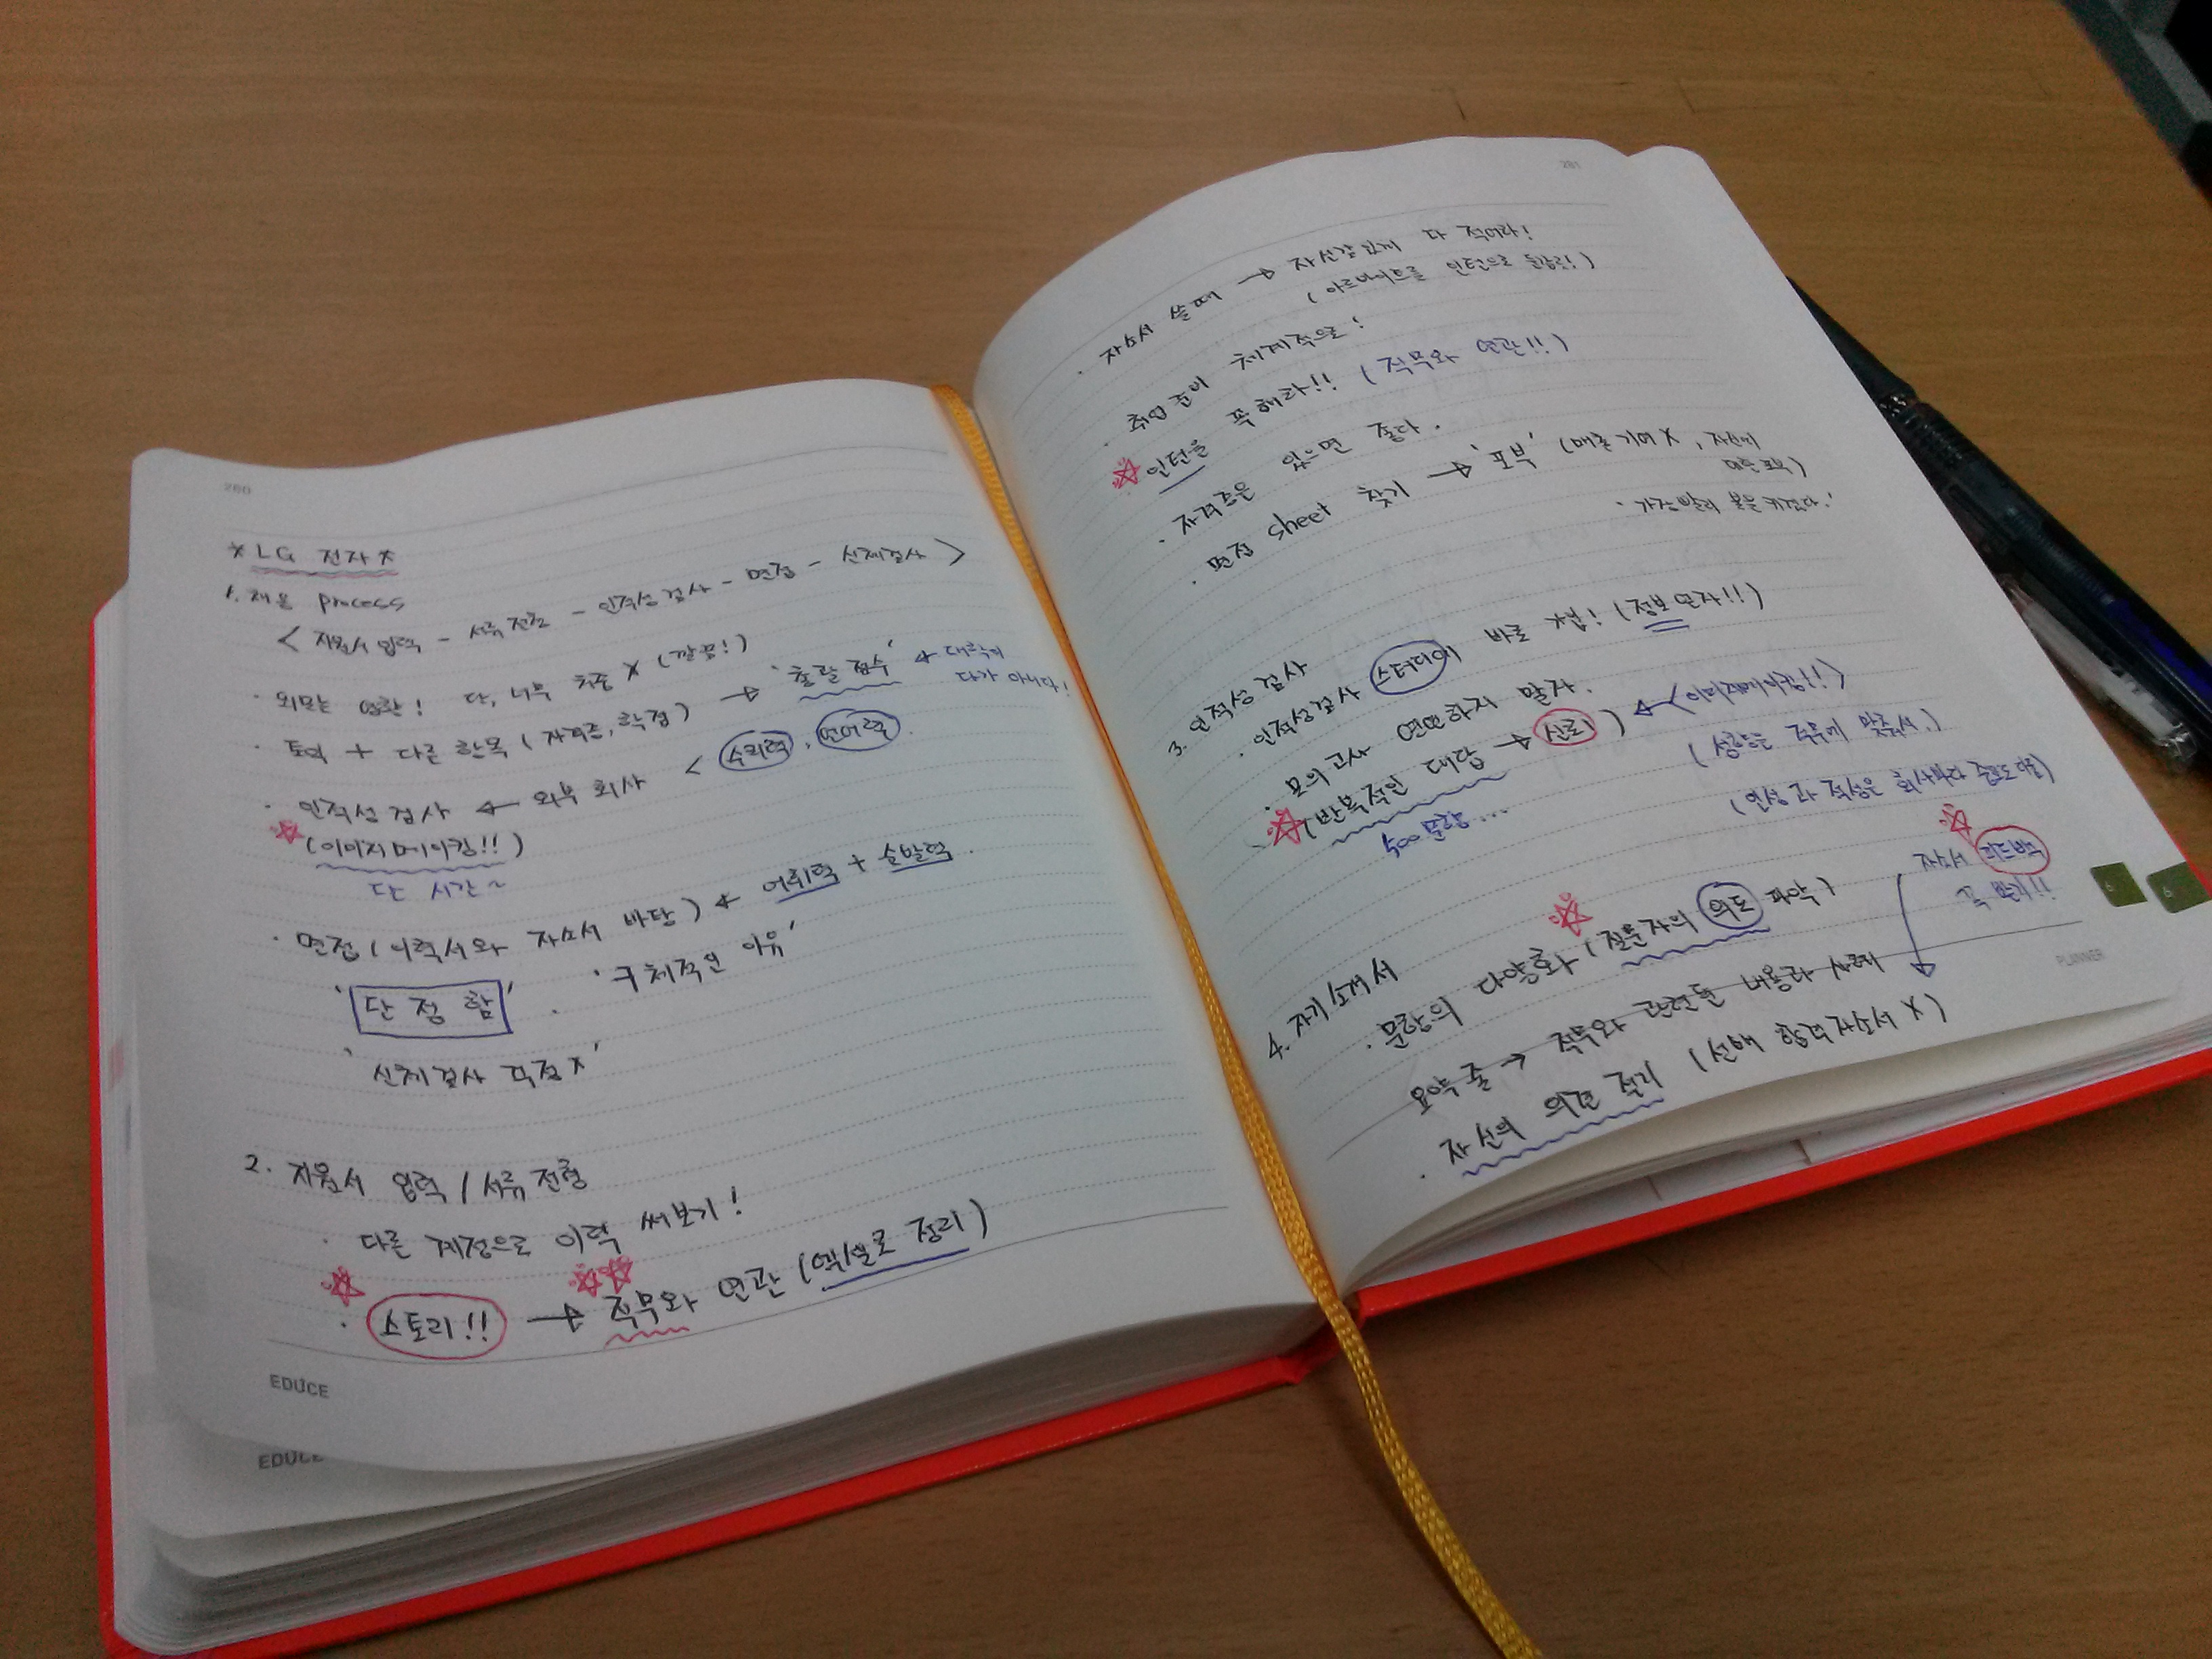 260
* LG 전자 *
1. 채용 process
< 지원서 입력 - 서류전형 - 인적성검사 - 면접 - 신체검사 >
· 외모는 영향! 단, 너무 치중 X (깔끔!)
· 토익 + 다른 항목 (자격증, 학점) → '총괄 점수' ← 대학이
다가 아니다!
· 인적성 검사 ← 외부 회사 < 수리력, 언어력.
(이미지메이킹!!)
단 시간~
· 면접 (이력서와 자소서 바탕) ← 어휘력 + 순발력.
'단정함'. '구체적인 이유'
'신체검사 걱정 X'
2. 지원서 입력 / 서류전형
· 다른 계정으로 이력 써보기!
· 스토리!! → 직무와 연관 (엑셀로 정리)
EDUCE
EDUCE
281
· 자소서 쓸때 → 자신감있게 다 적어라!
(아르바이트를 인턴으로)
· 취업준비 체계적으로!
인턴을 꼭 해라!! (직무와 연관!!)
· 자격증은 있으면 좋다.
· 면접 sheet 찾기 → '포부' (매출기여 X, 자신에
대한 포부)
3. 인적성 검사
· 인적성검사 스터디에 바로 가입! (정보먼저!!)
· 모의고사 연연하지 말자.
(반복적인 대답 → 신뢰) ← <이미지메이킹!!>
500문항... (성향은 직무에 맞춰서.)
(인성과 적성은 회사마다 중요도 다름)
4. 자기소개서
· 문항의 다양화 (질문자의 의도 파악)
자소서 피드백
꼭 받기!!
요약 줄 → 직무와 관련된 내용과 사례
· 자신의 의견 적기 (선배 합격자소서 X)
PLANNER